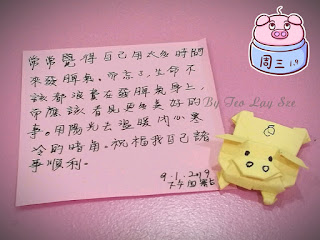 常常覺得自己用太多時間
來發脾氣。而忘了，生命不
該都浪費在發脾氣身上，
而應該看見更多美好的
事。用陽光去溫暖內心寒
冷的暗角。祝福我自己諸
事順利。
9.1.2019
下午四點
周三 1.9
By Teo Lay See